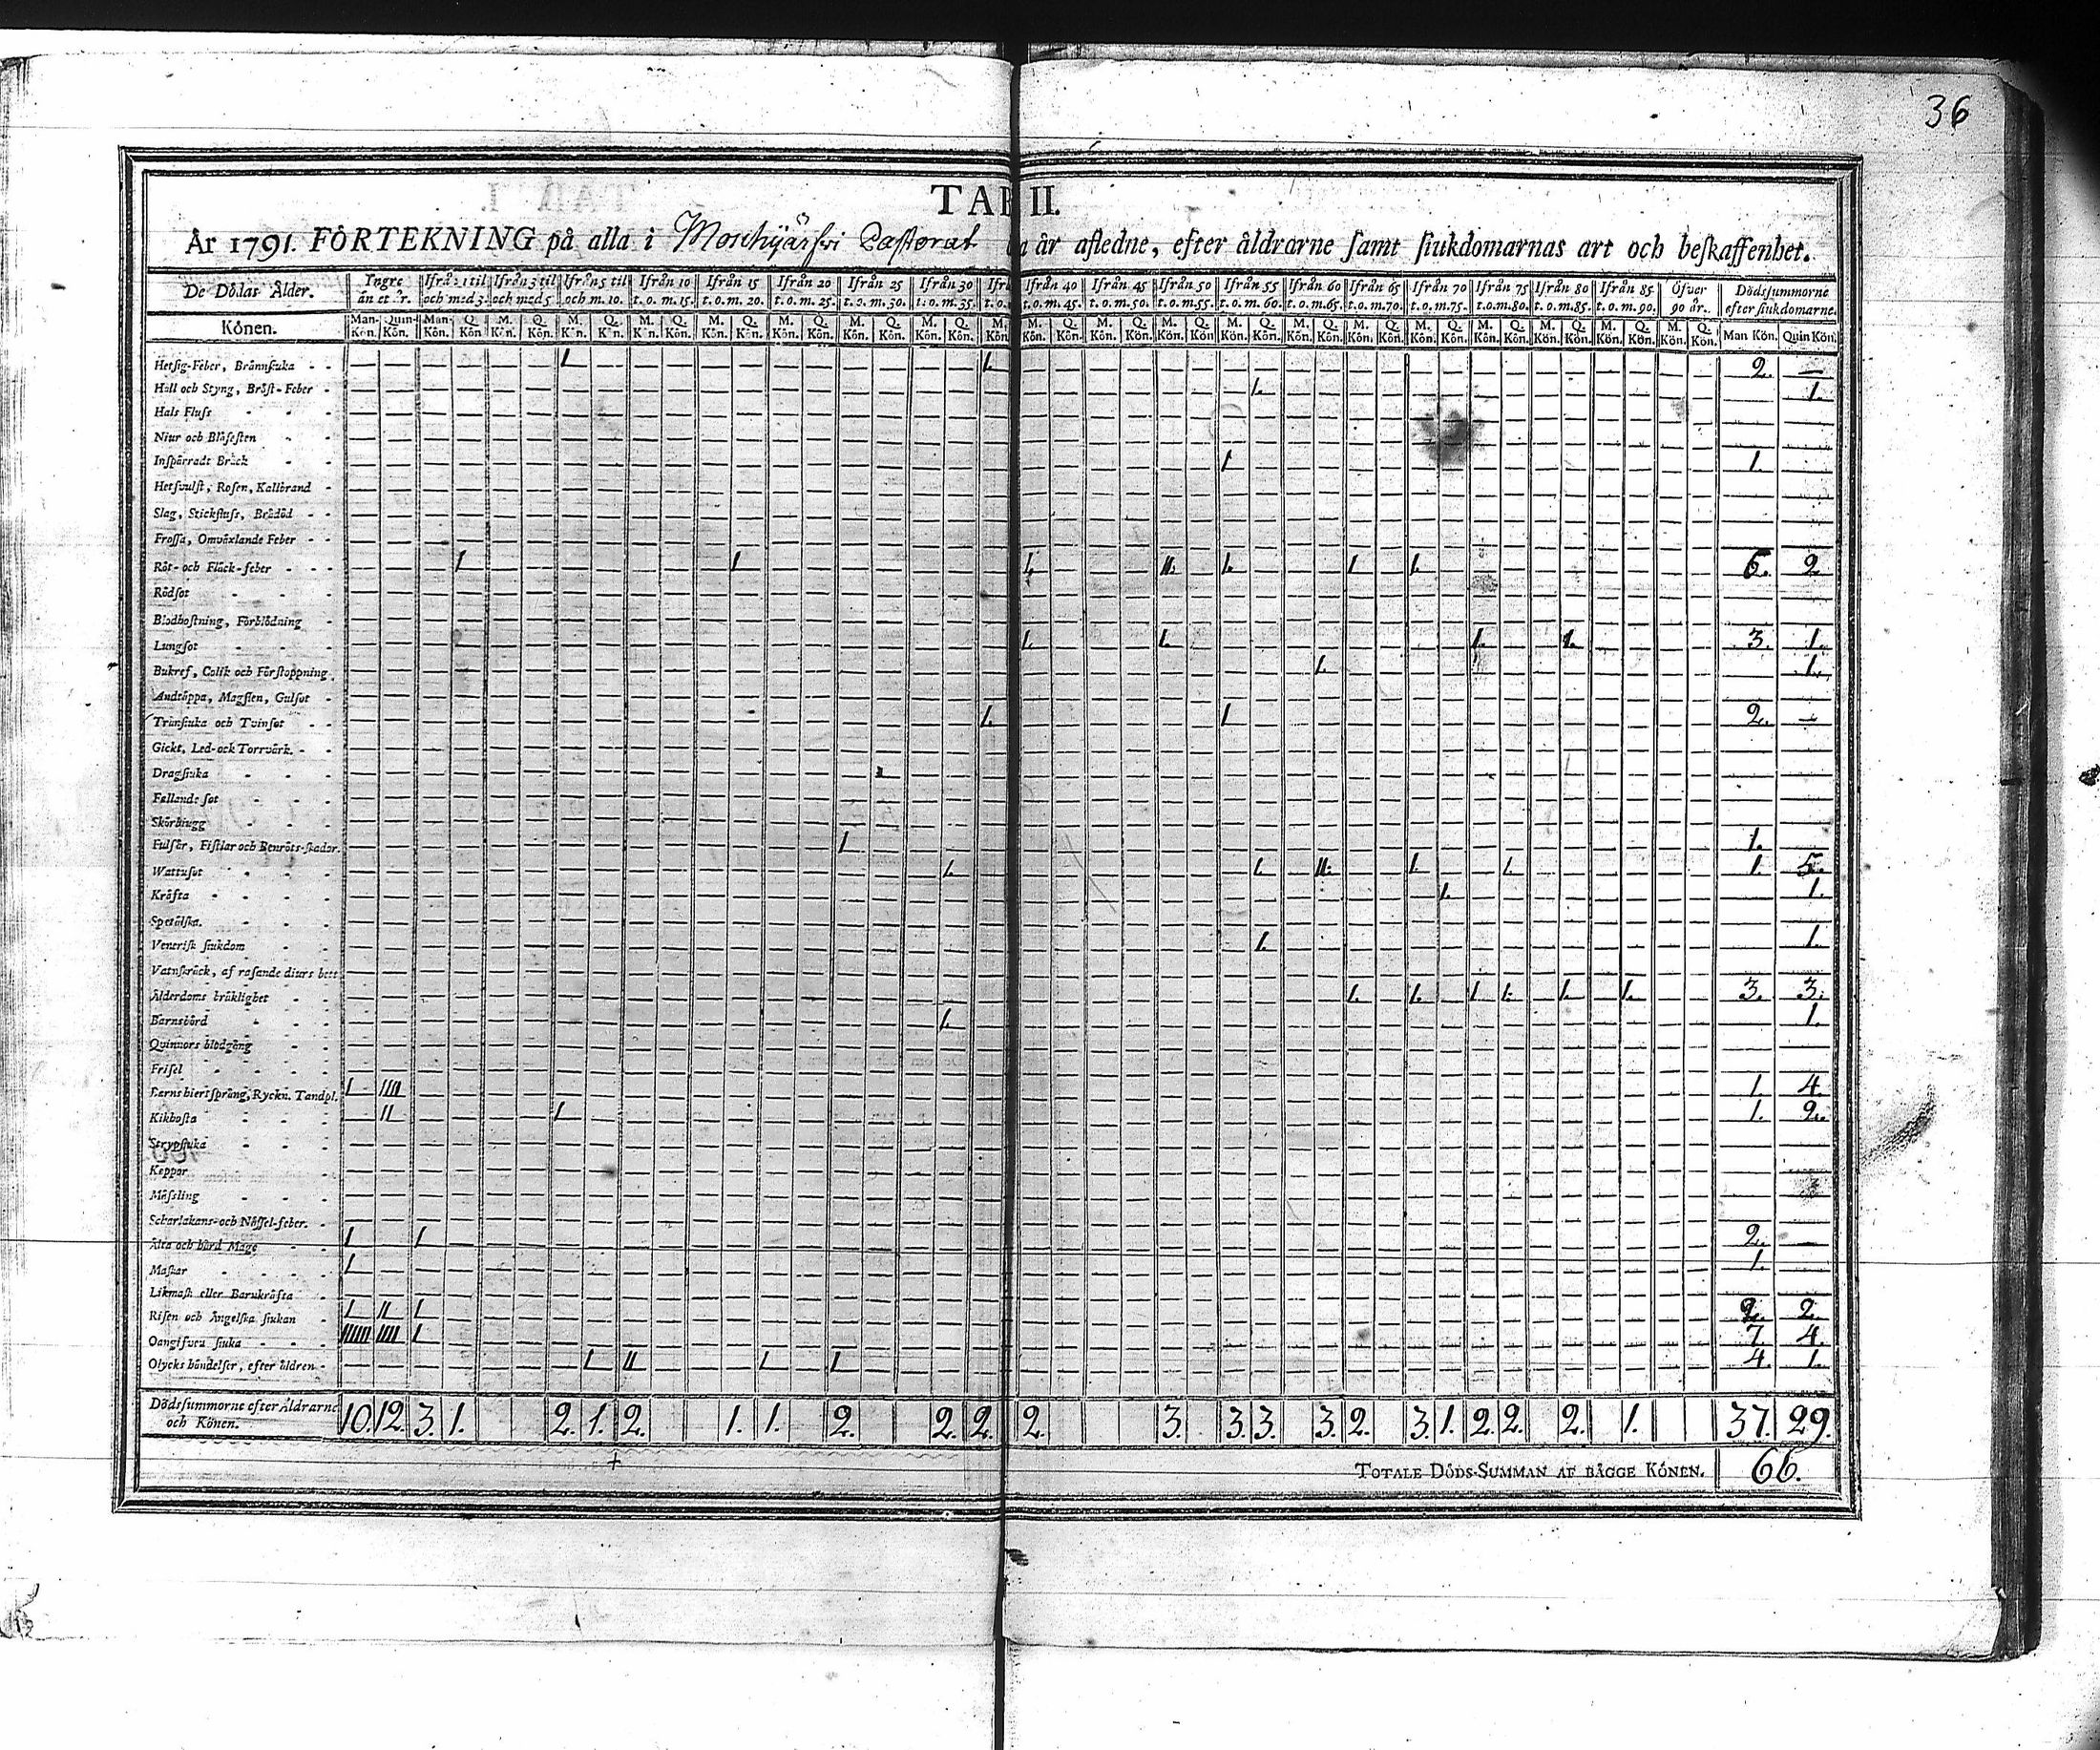 36
TAB II.
År 1791. FÖRTEKNING på alla i Mouhijärfvi Pastorat år afledne, efter åldrarne samt siukdomarnas art och beskaffenhet.
De Dödas Ålder. Yngre än et år. Ifrån 1 til och med 3. Ifrån 3 til och med 5 Ifrån 5 til och m. 10. Ifrån 10 t. o. m. 15. Ifrån 15 t. o. m. 20. Ifrån 20 t. o. m. 25. Ifrån 25 t. o. m. 30. Ifrån 30 t. o. m. 35. Ifrån 40 t. o. m. 45. Ifrån 45 t. o. m. 50. Ifrån 50 t. o. m. 55. Ifrån 55 t. o. m. 60. Ifrån 60 t. o. m. 65. Ifrån 65 t. o. m. 70. Ifrån 70 t. o. m. 75. Ifrån 75 t. o. m. 80. Ifrån 80 t. o. m. 85. Ifrån 85 t. o. m. 90. Öfver 90 år. Dödssummorne efter siukdomarne.
Könen. Man-Kön. Quin-Kön. Man-Kön. Q. Kön. M. Kön. Q. Kön. M. Kön. Q. Kön. M. Kön. Q. Kön. M. Kön. Q. Kön. M. Kön. Q. Kön. M. Kön. Q. Kön. M. Kön. Q. Kön. M. Kön. Q. Kön. M. Kön. Q. Kön. M. Kön. Q. Kön. M. Kön. Q. Kön. M. Kön. Q. Kön. M. Kön. Q. Kön. M. Kön. Q. Kön. M. Kön. Q. Kön. M. Kön. Q. Kön. M. Kön. Q. Kön. M. Kön. Q. Kön. Man Kön. Quin Kön.
Hetsig-Feber, Brännsiuka 1 1. 2. —
Håll och Styng, Bröst-Feber 1. 1.
Hals Fluss
Niur och Blåsesten
Inspärradt Bråck 1 1.
Hetsvulst, Rosen, Kallbrand
Slag, Stickfluss, Brådöd
Frossa, Omväxlande Feber
Röt- och Fläck-feber 1 1 1. 11. 1. 1 1. 6. 2
Rödsot
Blodhostning, Förblödning
Lungsot 1. 1. 1. 1. 3. 1.
Bukref, Colik och Förstoppning 1. 1.
Andtäppa, Magsien, Gulsot
Trånsiuka och Tvinsot 1. 1 2. —
Gickt, Led- ock Torrvärk.
Dragsiuka
Fallande sot
Skörbiugg
Fulsår, Fistlar och Benröts-skador. 1 1.
Wattusot 1. 1. 11. 1. 1. 1. 5.
Kräfta 1. 1.
Spetälska.
Venerisk siukdom 1. 1.
Vatnskräck, af rasande diurs bett
Ålderdoms bräklighet 1. 1. 1 1. 1. 1. 3. 3.
Barnsbörd 1. 1.
Quinnors blodgång
Frisel
Barns hiertsprång, Ryckn. Tandpl. 1 1111 1. 4.
Kikhosta 11 1 1. 2.
Strypsiuka
Koppor
Mässling
Scharlakans- och Nässel-feber.
Älta och hård Mage 1 1 2. —
Maskar 1 1.
Likmask eller Barnkräfta
Risen och Ängelska siukan 1 11 1 2. 2.
Oangifven siuka 111111 1111 1 7. 4.
Olycks händelser, efter åldren 1 11 1 1 4. 1.
Dödssummorne efter Åldrarne och Könen. 10. 12. 3. 1. 2. 1. 2. 1. 1. 2. 2. 2. 2. 3. 3. 3. 3. 2. 3. 1. 2. 2. 2. 1. 37. 29.
TOTALE DÖDS-SUMMAN AF BÄGGE KÖNEN. 66.